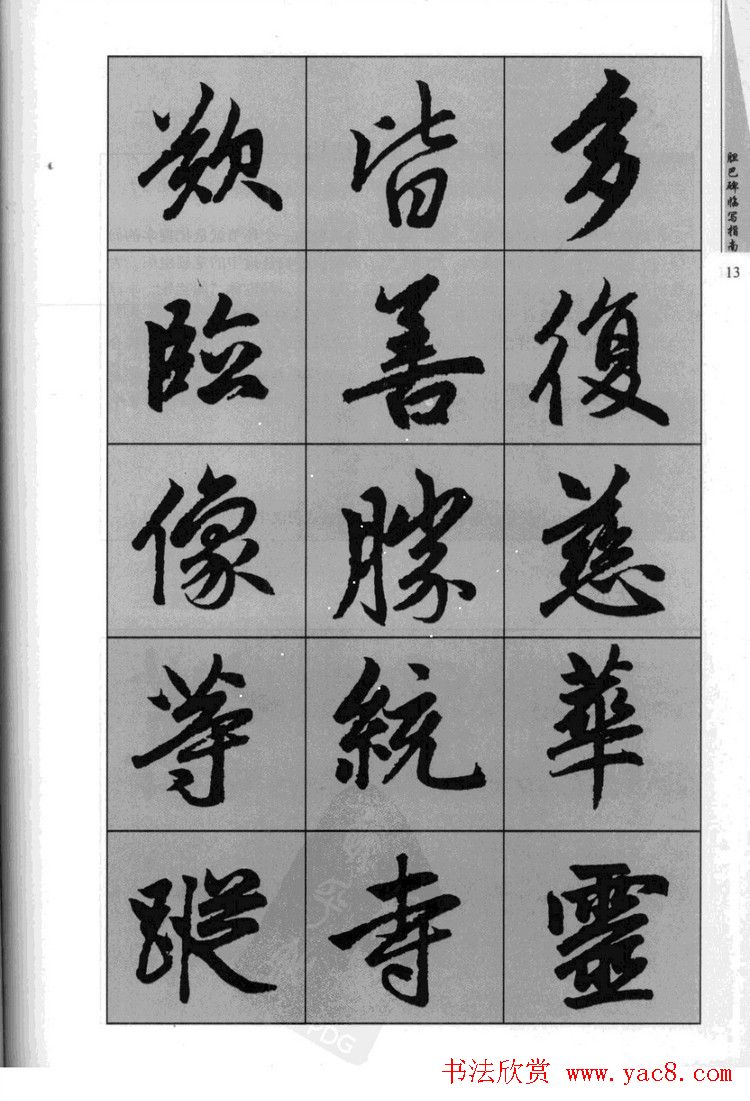 胆巴碑临写指南
13
多復慈華靈
皆善勝統寺
歎臨像等蹤
书法欣赏 www.yac8.com